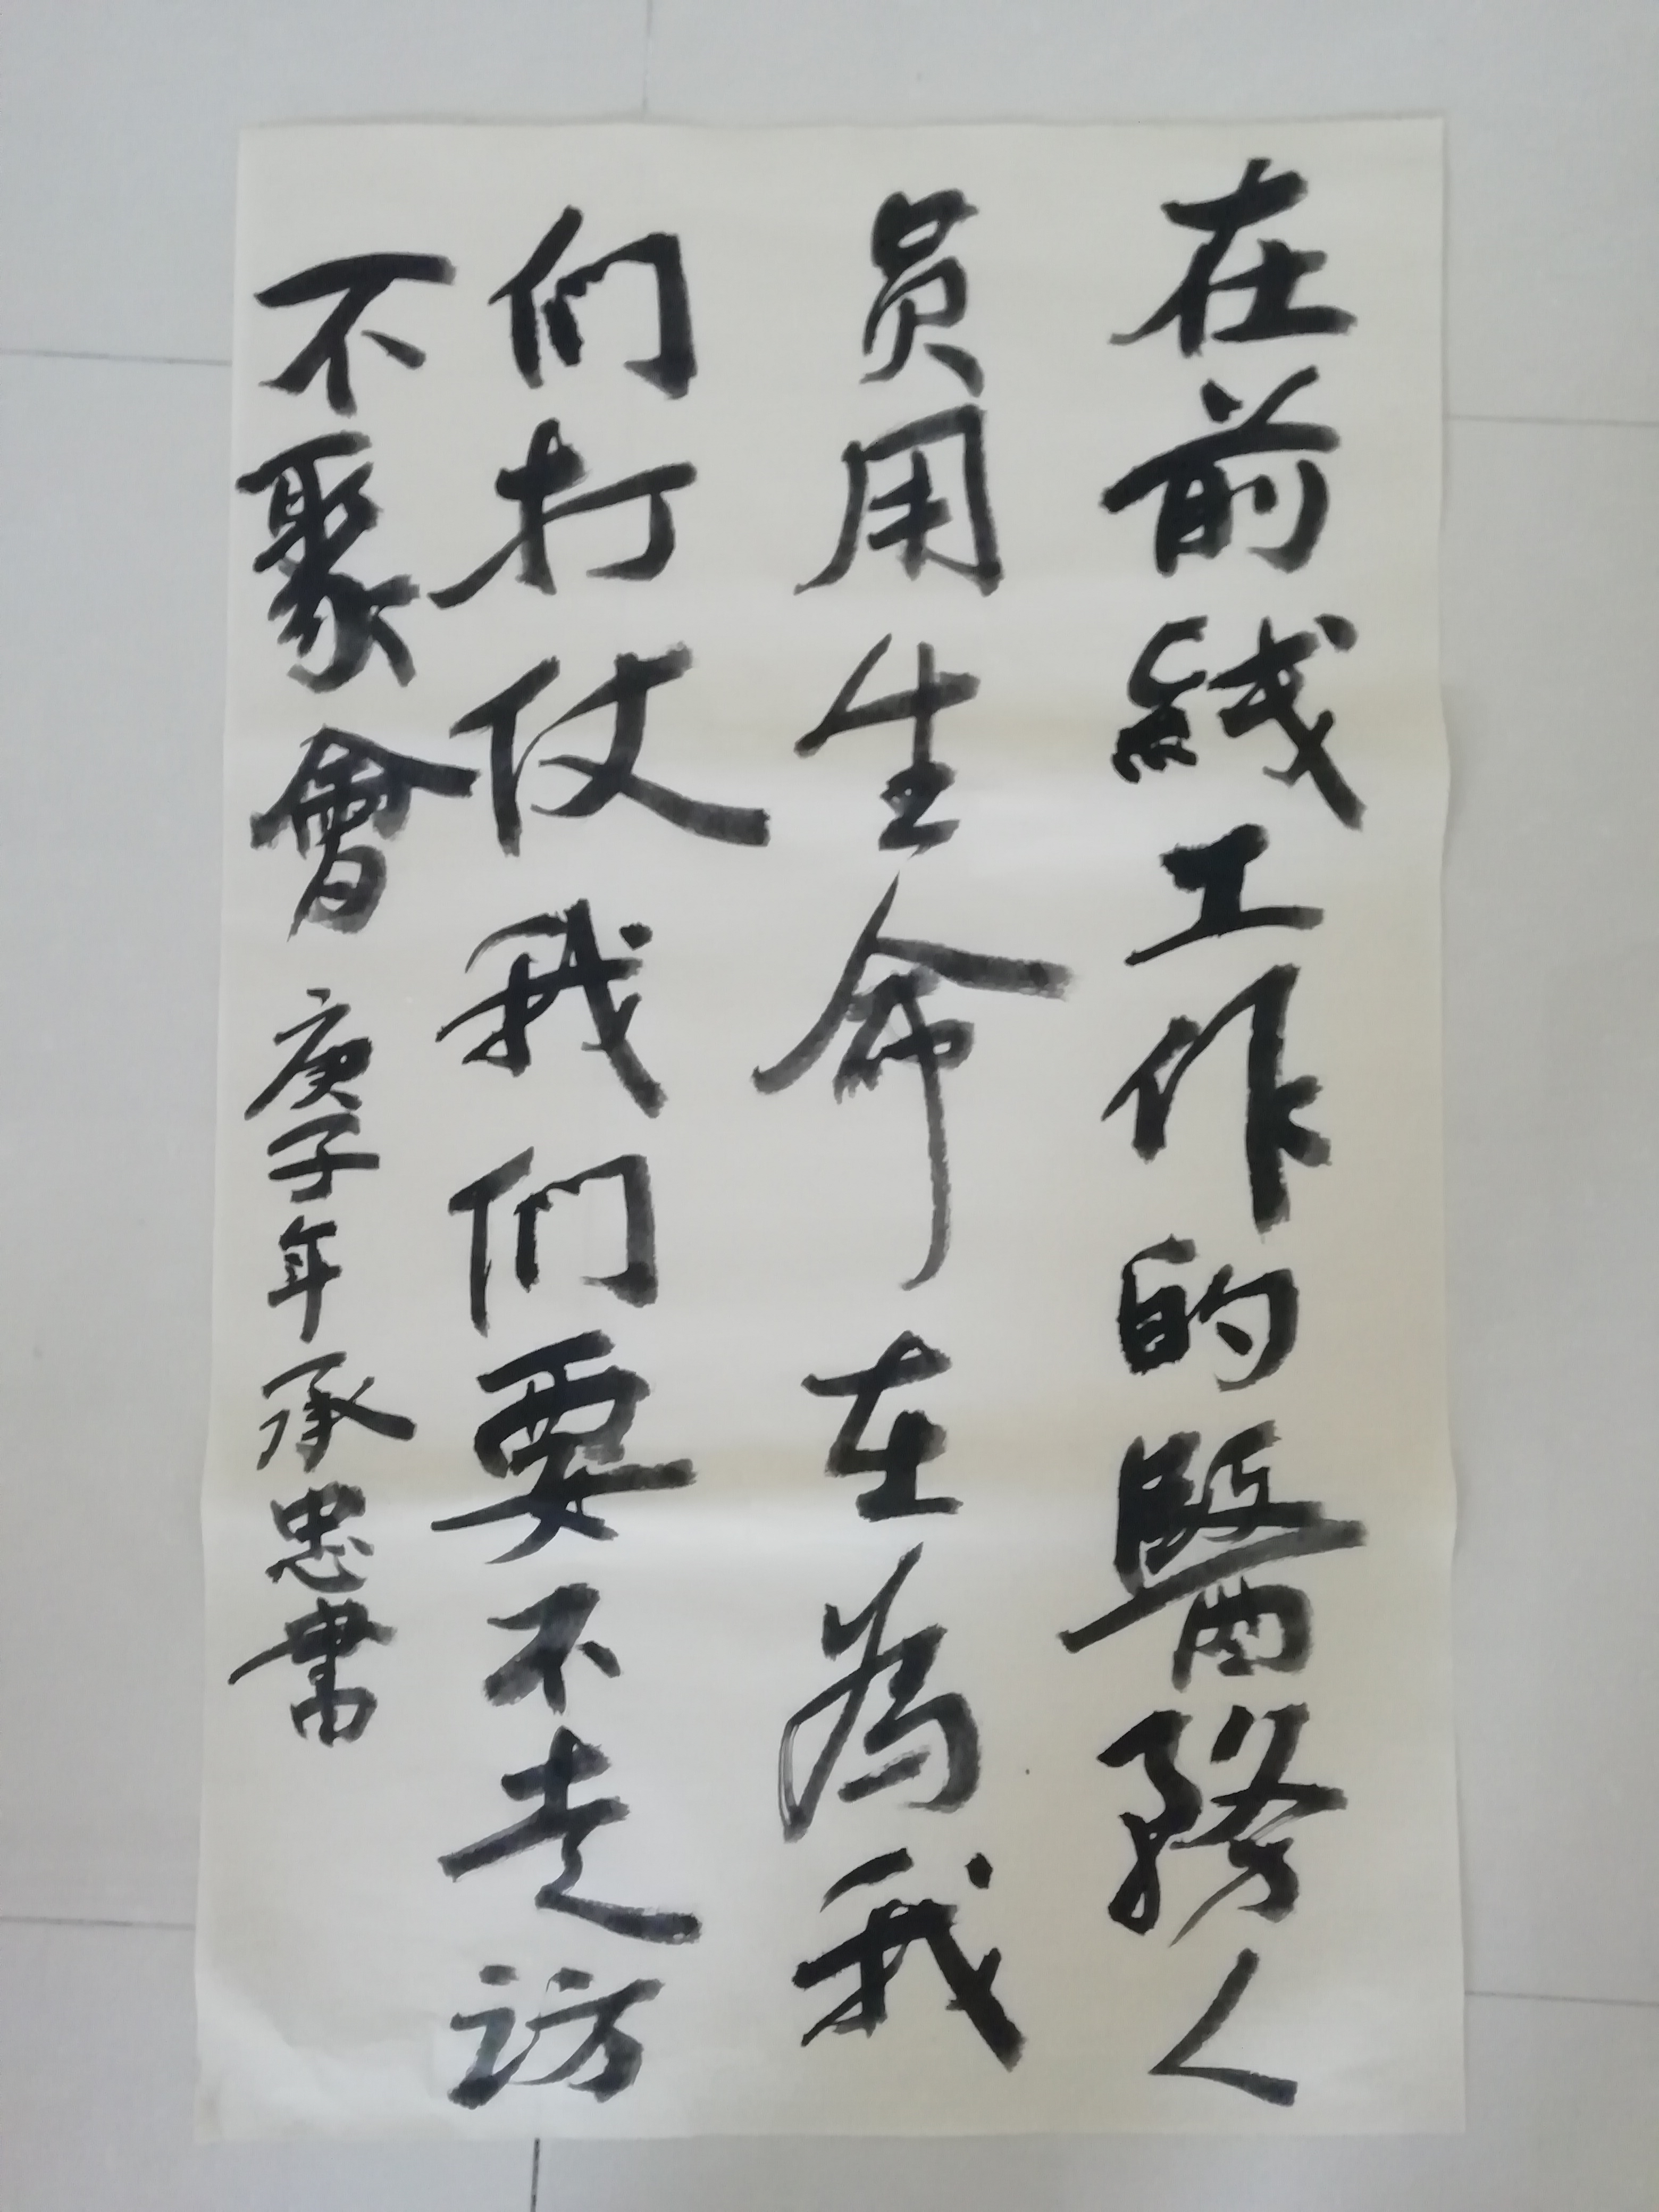 在前綫工作的醫務人
员用生命在為我
们打仗我们要不走访
不聚會 庚子年承忠書